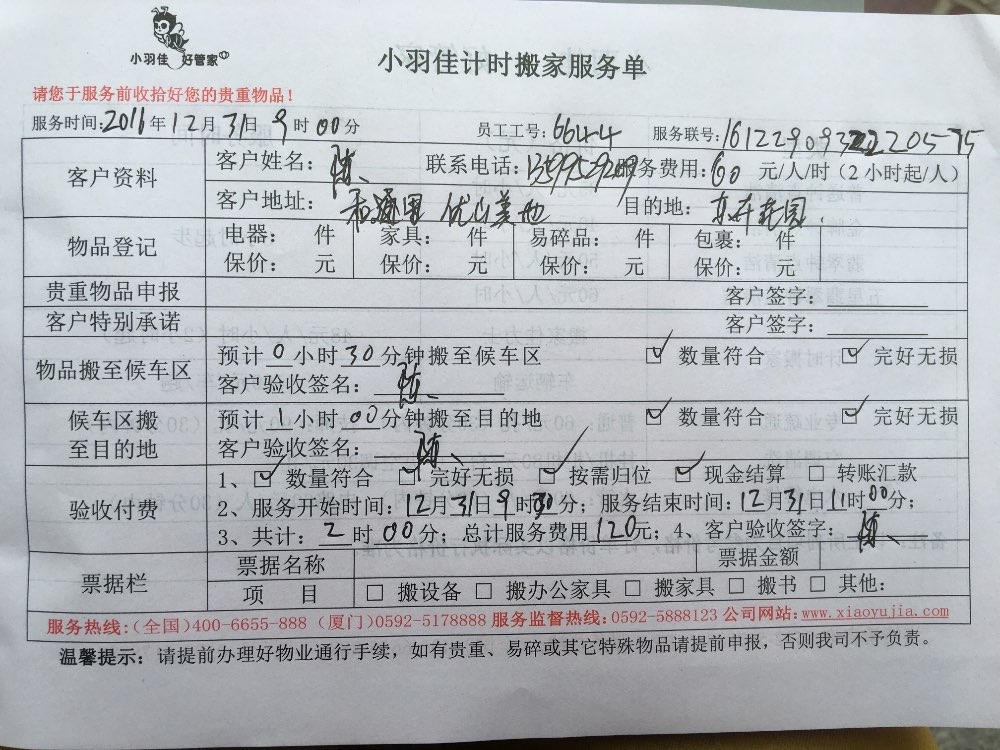 小羽佳 好管家
小羽佳计时搬家服务单
请您于服务前收拾好您的贵重物品！
服务时间:2016年12月31日9时00分 员工工号:6644 服务联号:
客户资料 客户姓名:陈 联系电话: 服务费用:60元/人/时(2小时起/人)
客户地址: 优山美地 目的地: 花园
物品登记 电器: 件 家具: 件 易碎品: 件 包裹: 件
保价: 元 保价: 元 保价: 元 保价: 元
贵重物品申报 客户签字:
客户特别承诺 客户签字:
物品搬至候车区 预计0小时30分钟搬至候车区 数量符合 完好无损
客户验收签名:陈
候车区搬至目的地 预计1小时00分钟搬至目的地 数量符合 完好无损
客户验收签名:陈
验收付费 1、数量符合 完好无损 按需归位 现金结算 转账汇款
2、服务开始时间:12月31日9时分;服务结束时间:12月31日11时00分;
3、共计:2时00分;总计服务费用120元;4、客户验收签字:陈
票据栏 票据名称 票据金额
项 目 搬设备 搬办公家具 搬家具 搬书 其他:
服务热线:(全国)400-6655-888 (厦门)0592-5178888 服务监督热线:0592-5888123 公司网站:www.xiaoyujia.com
温馨提示: 请提前办理好物业通行手续,如有贵重、易碎或其它特殊物品请提前申报,否则我司不予负责。